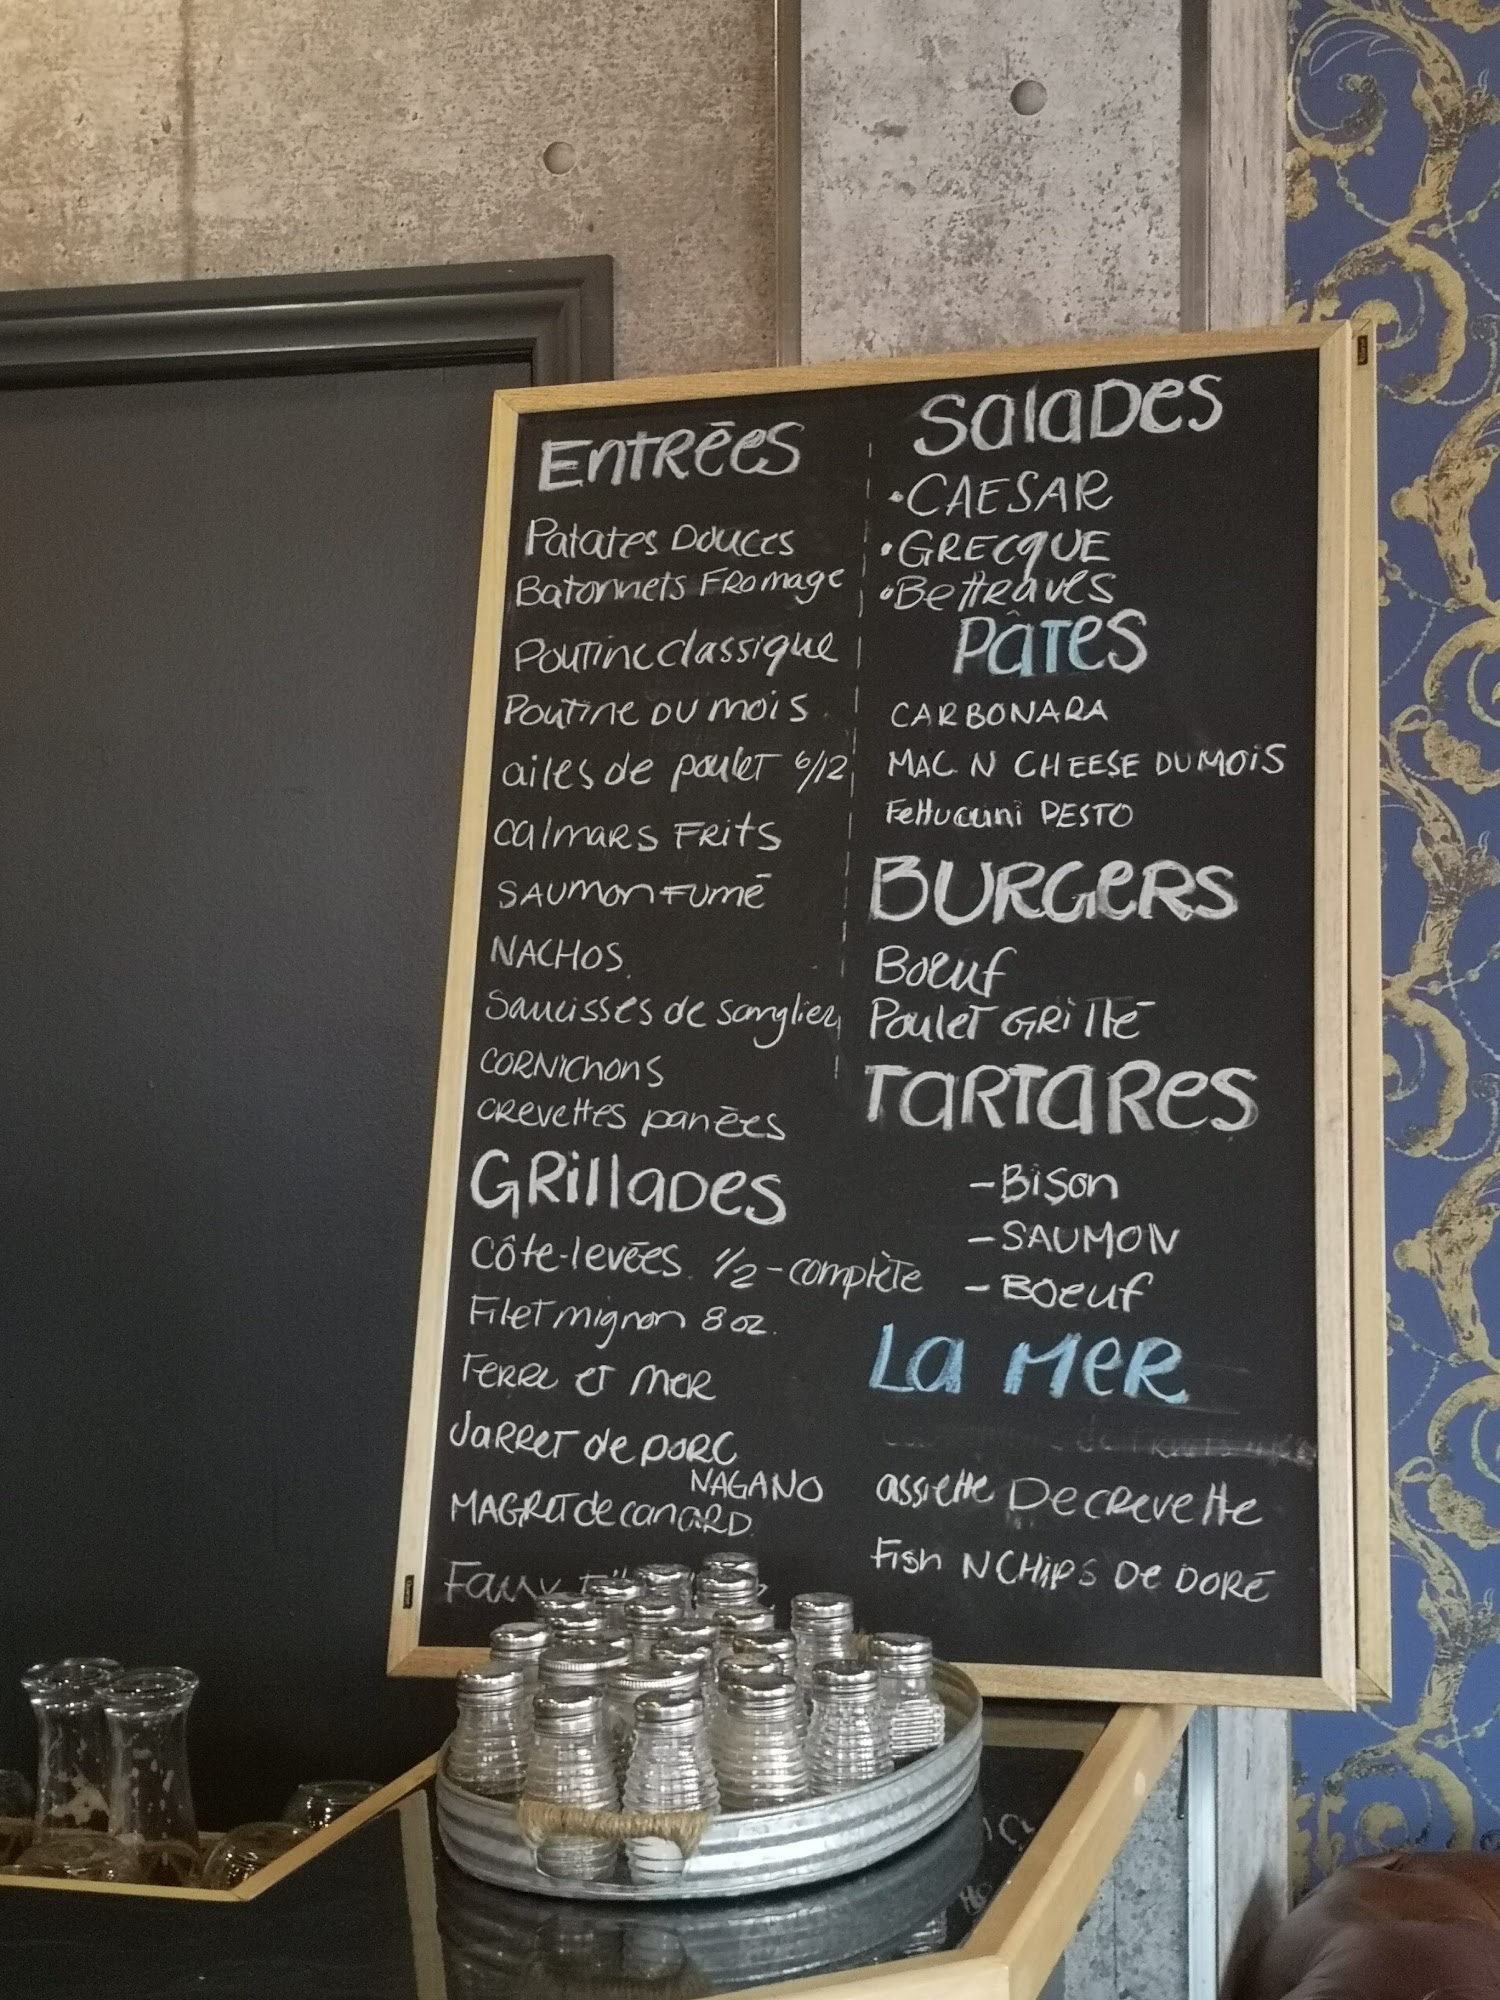 Entrées
Patates Douces
Batonnets Fromage
Poutine classique
Poutine du mois
ailes de poulet 6/12
calmars frits
Saumon fumé
NACHOS
Saucisses de sanglier
CORNichons
crevettes panées
Grillades
Côte-levées 1/2 - complète
Filet mignon 8 oz.
Terre et mer
Jarret de porc
NAGANO
MAGRET de canard
Faux
Salades
• CAESAR
• GRECQUE
• Bettraves
Pâtes
CARBONARA
MAC N CHEESE DU MOIS
Fettuccini PESTO
BURGERS
Boeuf
Poulet Grillé
TARTARES
- Bison
- SAUMON
- Boeuf
La Mer
assiette De crevette
Fish N CHIPS De DORÉ